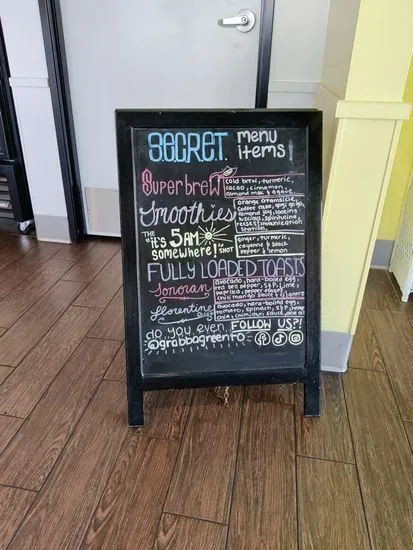 SECRET menu items!
Superbrew
cold brew, turmeric,
cacao, cinnamon,
almond milk & agave
Smoothies
orange creamsicle,
coffee cake, goji
almond joy,
station
THE "IT'S 5AM somewhere!" SHOT
ginger, turmeric,
cayenne & black
pepper & lemon
FULLY LOADED TOASTS
Sonoran
avocado, hard-boiled egg,
red bell pepper, S+P, lime,
paprika, pepper flakes,
chili mango sauce & cilantro
Florentine
avocado, hard-boiled egg,
tomato, spinach, S+P, hemp
do you even FOLLOW US?!
@grabbagreen